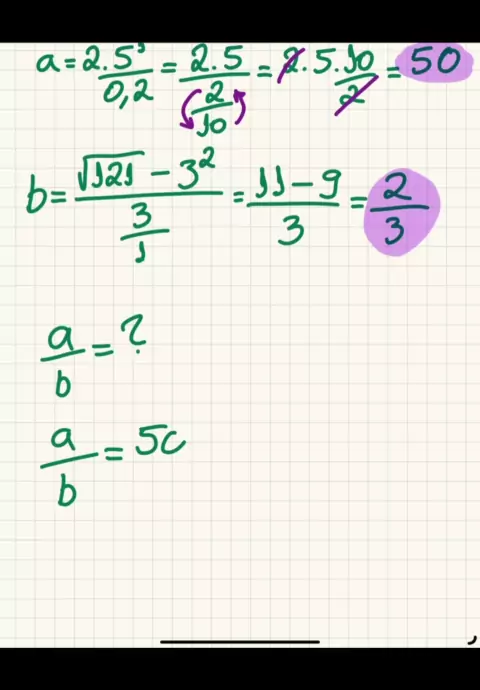 a = 2.5¹/0,2 = 2.5/(2/10) = 2.5.10/2 = 50
b = (√121 − 3²)/(3/1) = (11 − 9)/3 = 2/3
a/b = ?
a/b = 5c